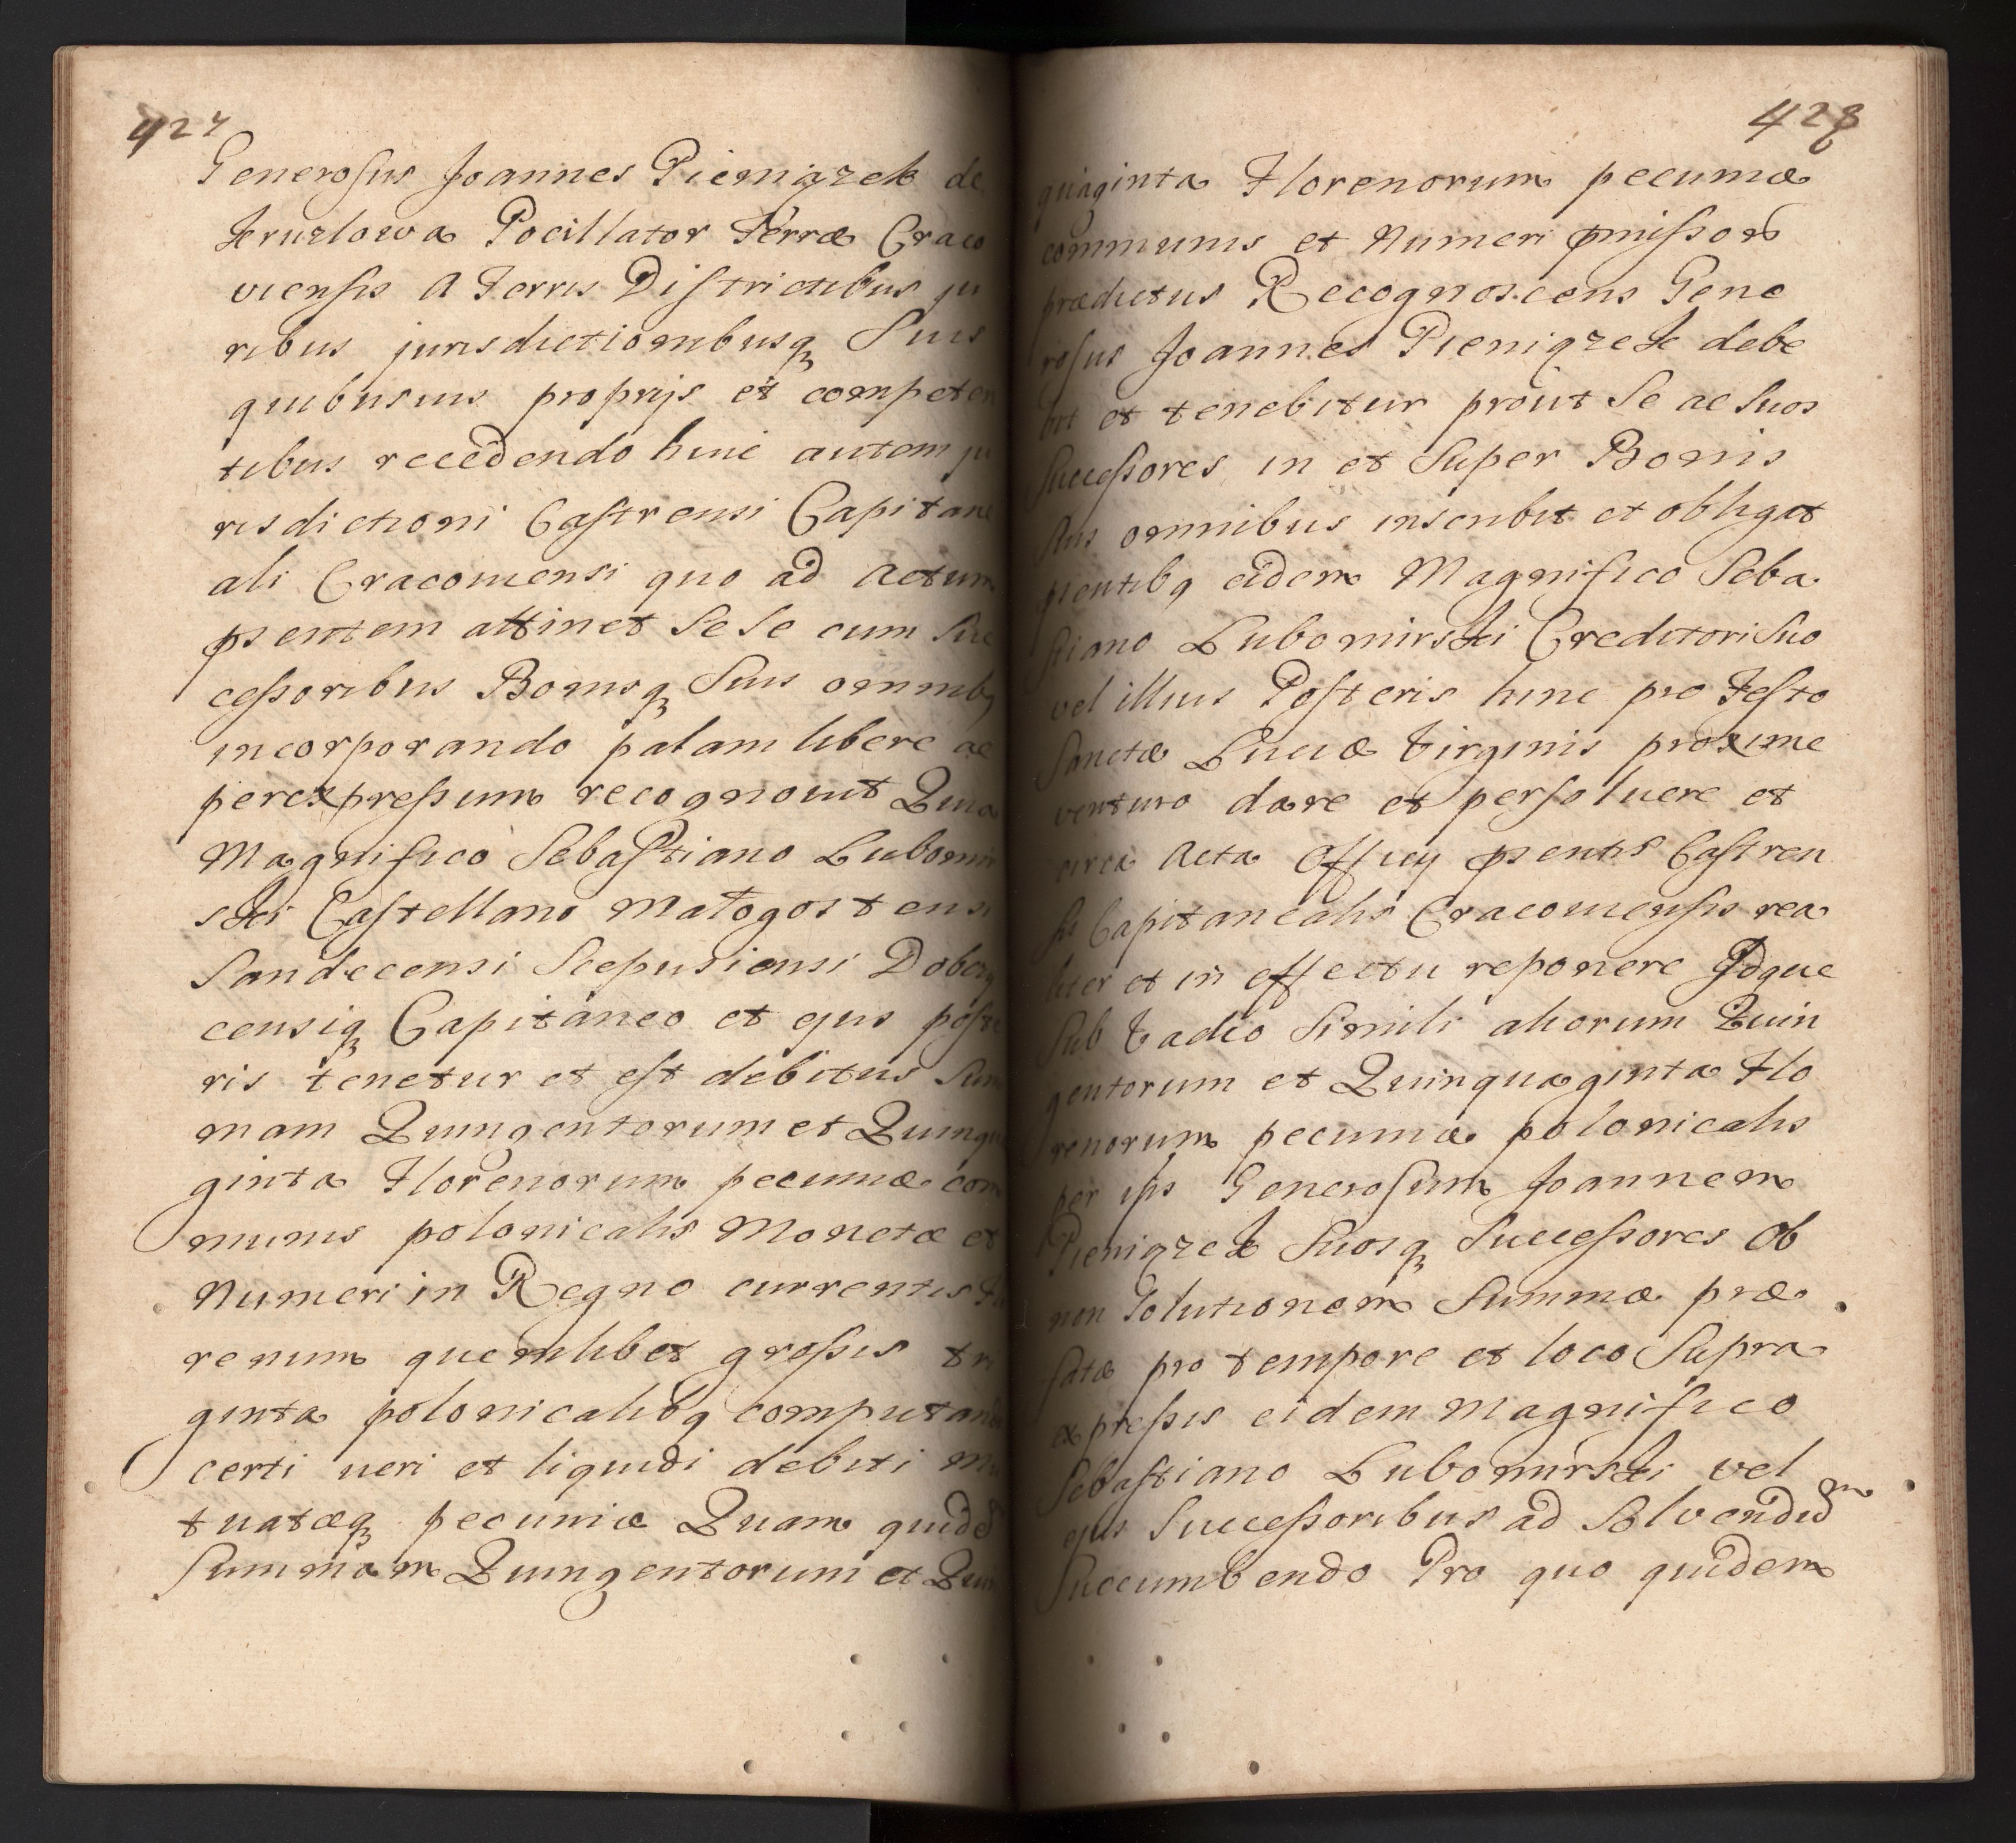 427
Generosus Joannes Pieniązek de
Kruzlowa Pocillator Terræ Craco
viensis A Terris Districtibus ju
ribus jurisdictionibusq Suis
quibusuis proprijs et competen
tibus recedendo huic autem ju
risdictioni Castrensi Capitane
ali Cracouiensi quo ad Actum
psentem attinet Sese cum Suc
cessoribus Bonisq Suis omnibq
incorporando palam libere ac
per expressum recognouit Quia
Magnifico Sebastiano Lubomir
ski Castellano Małogostensi
Sandecensi Scepusiensi Dobczy
censiq Capitaneo et ejus poste
ris tenetur et est debitus Sum
mam Quingentorum et Quinqua
ginta Florenorum pecuniæ com
munis polonicalis Monetæ et
Numeri in Regno currentis Flo
renum quemlibet grossis tri
ginta polonicalibq computando
certi ueri et liquidi debiti mu
tuatæq pecuniæ Quam quidē
Summam Quingentorum et Quin
428
quaginta Florenorum pecuniæ
communis et Numeri pmissor
prædictus Recognoscens Gene
rosus Joannes Pieniązek debe
bit et tenebitur prout Se ac Suos
Successores in et Super Bonis
Suis omnibus inscribit et obligat
psentibq eidem Magnifico Seba
stiano Lubomirski Creditori Suo
vel illius Posteris hinc pro Festo
Sanctæ Luciæ Virginis proxime
venturo dare et persoluere et
circa Acta Officij psentis Castren
sis Capitanealis Cracouiensis rea
liter et in effectu reponere Idque
Sub Vadio Simili aliorum Quin
gentorum et Quinquaginta Flo
renorum pecuniæ polonicalis
per ips Generosum Joannem
Pieniązek Suosq Successores Ob
non Solutionem Summæ præ
fatæ pro tempore et loco Supra
expressis eidem Magnifico
Sebastiano Lubomirski vel
ejus Successoribus ad Solvendūm
Succumbendo Pro quo quidem